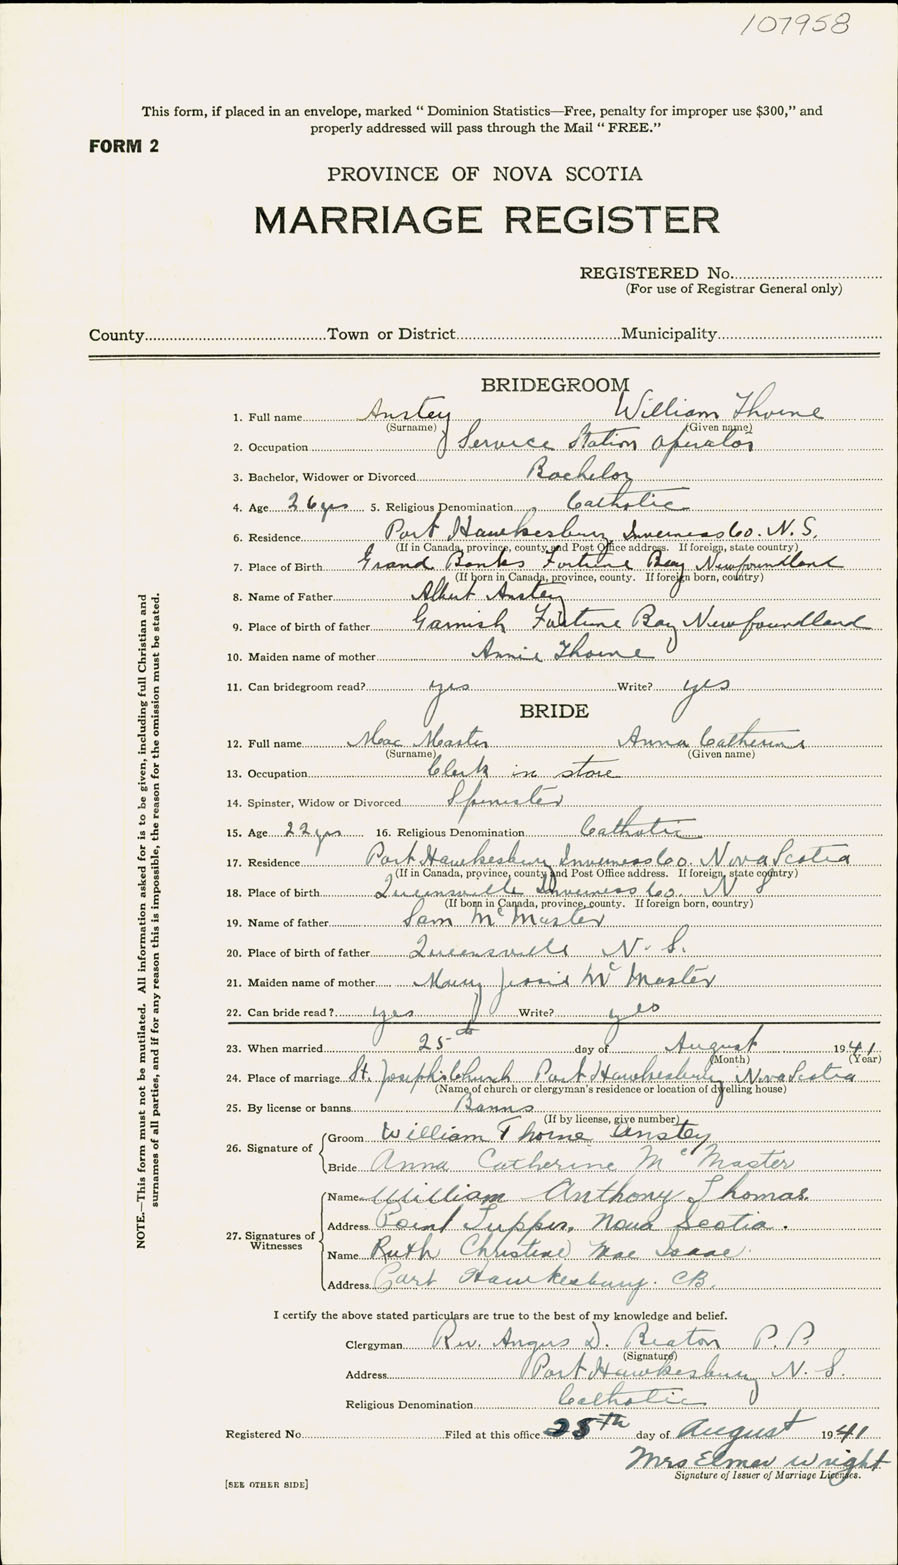 107958
This form, if placed in an envelope, marked “ Dominion Statistics—Free, penalty for improper use $300,” and
properly addressed will pass through the Mail “ FREE.”
FORM 2
PROVINCE OF NOVA SCOTIA
MARRIAGE REGISTER
REGISTERED No.
(For use of Registrar General only)
County Town or District Municipality
BRIDEGROOM
1. Full name Anstey William Thorne
(Surname) (Given name)
2. Occupation Service Station Operator
3. Bachelor, Widower or Divorced Bachelor
4. Age 26 yrs 5. Religious Denomination Catholic
6. Residence Port Hawkesbury Inverness Co. N. S.
(If in Canada, province, county and Post Office address. If foreign, state country)
7. Place of Birth Grand Banks Fortune Bay Newfoundland
(If born in Canada, province, county. If foreign born, country)
8. Name of Father Albert Anstey
9. Place of birth of father Garnish Fortune Bay Newfoundland
10. Maiden name of mother Annie Thorne
11. Can bridegroom read? yes Write? yes
BRIDE
12. Full name Mac Master Anna Catherine
(Surname) (Given name)
13. Occupation Clerk in store
14. Spinster, Widow or Divorced Spinster
15. Age 22 yrs 16. Religious Denomination Catholic
17. Residence Port Hawkesbury Inverness Co. Nova Scotia
(If in Canada, province, county and Post Office address. If foreign, state country)
18. Place of birth Queensville Inverness Co. N S
(If born in Canada, province, county. If foreign born, country)
19. Name of father Sam McMaster
20. Place of birth of father Queensville N. S.
21. Maiden name of mother Mary Jessie McMaster
22. Can bride read? yes Write? yes
23. When married 25th day of August 1941
(Month) (Year)
24. Place of marriage St. Joseph's Church Port Hawkesbury Nova Scotia
(Name of church or clergyman's residence or location of dwelling house)
25. By license or banns Banns
(If by license, give number)
26. Signature of Groom William Thorne Anstey
Bride Anna Catherine McMaster
27. Signatures of Witnesses Name William Anthony Thomas
Address Point Tupper, Nova Scotia.
Name Ruth Christine Mac Isaac
Address Port Hawkesbury. CB.
I certify the above stated particulars are true to the best of my knowledge and belief.
Clergyman Rev. Angus D. Beaton P. P.
(Signature)
Address Port Hawkesbury N. S.
Religious Denomination Catholic
Registered No. Filed at this office 25th day of August 1941
Mrs Elmer Wright
Signature of Issuer of Marriage Licenses.
[SEE OTHER SIDE]
NOTE.—This form must not be mutilated. All information asked for is to be given, including full Christian and
surnames of all parties, and if for any reason this is impossible, the reason for the omission must be stated.